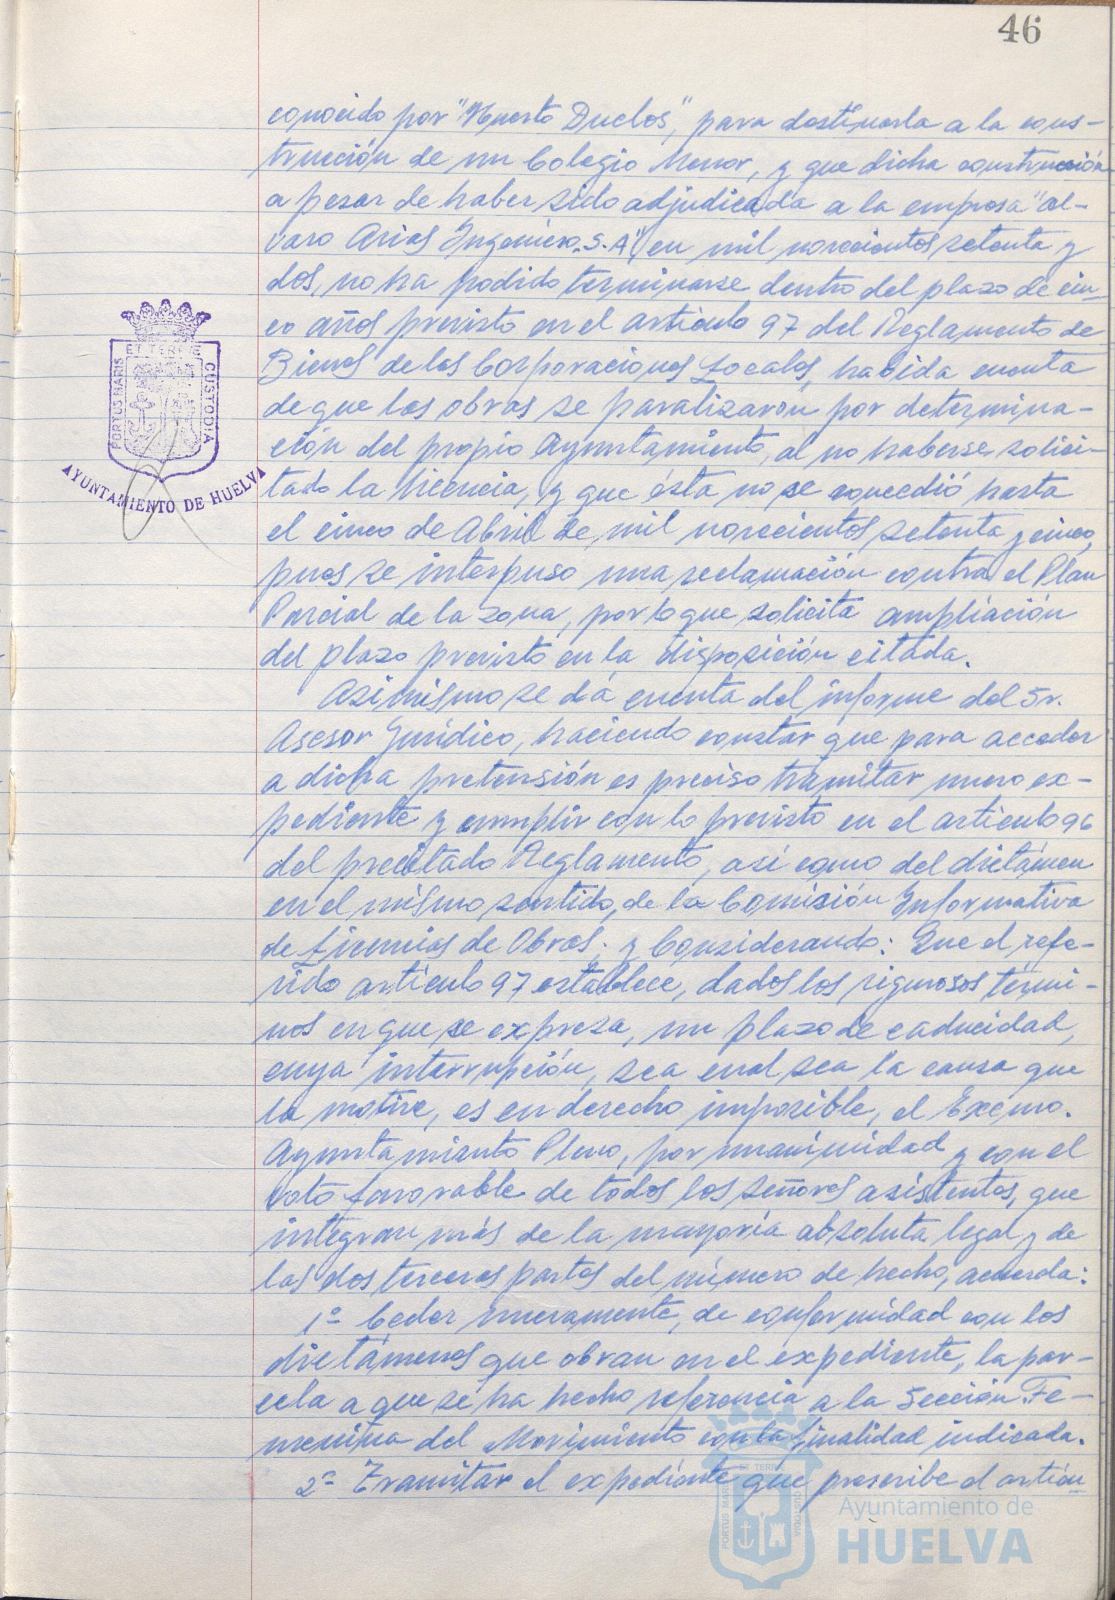 46
conocido por "Huerto Duclos", para destinarla a la cons-
trucción de un Colegio Menor, y que dicha construcción
a pesar de haber sido adjudicada a la empresa "Al-
varo Arias Ingeniero.S.A" en mil novecientos setenta y
dos, no ha podido terminarse dentro del plazo de cin-
co años previsto en el artículo 97 del Reglamento de
Bienes de las Corporaciones Locales, habida cuenta
de que las obras se paralizaron por determina-
ción del propio Ayuntamiento, al no haberse solici-
tado la licencia, y que ésta no se concedió hasta
el cinco de Abril de mil novecientos setenta y cinco,
pues se interpuso una reclamación contra el Plan
Parcial de la zona, por lo que solicita ampliación
del plazo previsto en la disposición citada.
Asimismo se dá cuenta del informe del Sr.
Asesor Jurídico, haciendo constar que para acceder
a dicha pretensión es preciso tramitar nuevo ex-
pediente y cumplir con lo previsto en el artículo 96
del precitado Reglamento, así como del dictámen
en el mismo sentido, de la Comisión Informativa
de Licencias de Obras; y Considerando: Que el refe-
rido artículo 97 establece, dados los rigurosos térmi-
nos en que se expresa, un plazo de caducidad,
cuya interrupción, sea cual sea la causa que
la motive, es en derecho imposible, el Excmo.
Ayuntamiento Pleno, por unanimidad y con el
voto favorable de todos los señores asistentes, que
integran más de la mayoría absoluta legal y de
las dos terceras partes del número de hecho, acuerda:
1º Ceder nuevamente, de conformidad con los
dictámenes que obran en el expediente, la par-
cela a que se ha hecho referencia a la Sección Fe-
menina del Movimiento con la finalidad indicada.
2º Tramitar el expediente que prescribe el artícu-
PORTUS MARIS
ET TERRE
CUSTODIA
AYUNTAMIENTO DE HUELVA
PORTUS MARIS
ET TERRE
CUSTODIA
Ayuntamiento de
HUELVA